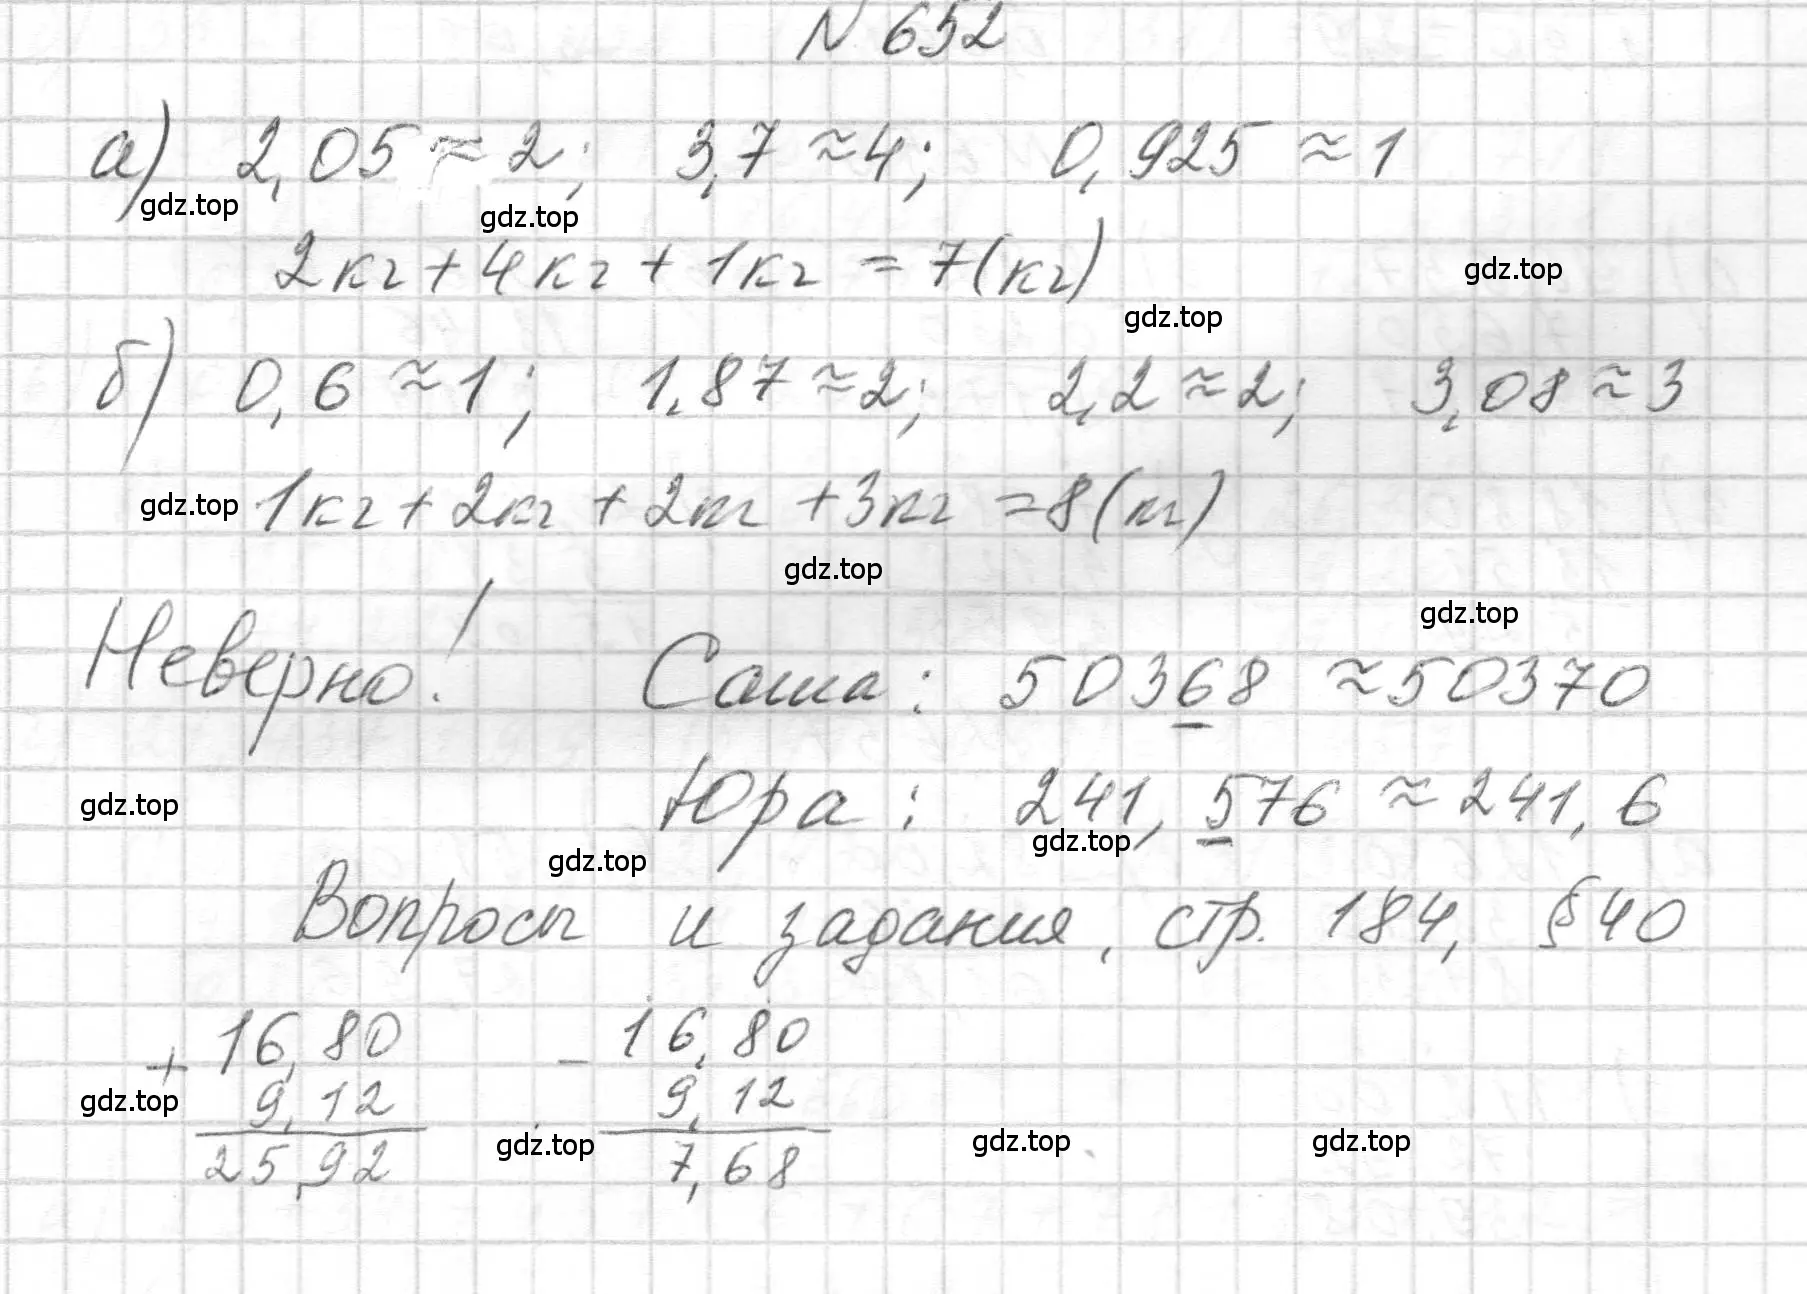 N 652
а) 2,05 ≈ 2; 3,7 ≈ 4; 0,925 ≈ 1
gdz.top gdz.top
2кг + 4кг + 1кг = 7(кг)
gdz.top
gdz.top
б) 0,6 ≈ 1; 1,87 ≈ 2; 2,2 ≈ 2; 3,08 ≈ 3
gdz.top 1кг + 2кг + 2кг + 3кг = 8(кг)
gdz.top
gdz.top
Неверно! Саша: 50368 ≈ 50370
gdz.top Юра: 241,576 ≈ 241,6
gdz.top gdz.top
Вопросы и задания, стр. 184, §40
+ 16,80 - 16,80
gdz.top 9,12 9,12
gdz.top gdz.top gdz.top
25,92 7,68